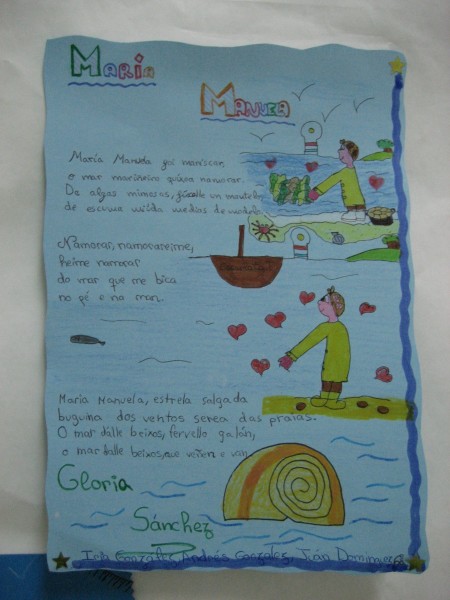 María
Manuela
María Manuela foi mariscar,
o mar mariñeiro quíxoa namorar.
De algas mimosas, fíxolle un mantelo
de escuma miúda medias de
Namorar, namorareime,
heime namorar
do mar que me bica
no pé e na man.
María Manuela, estrela salgada
buguina dos ventos serea das praias.
O mar dalle beixos, fervello galán,
o mar dalle beixos,que veñen e van
Gloria
Sánchez
González, Andrés González, Iván Domínguez